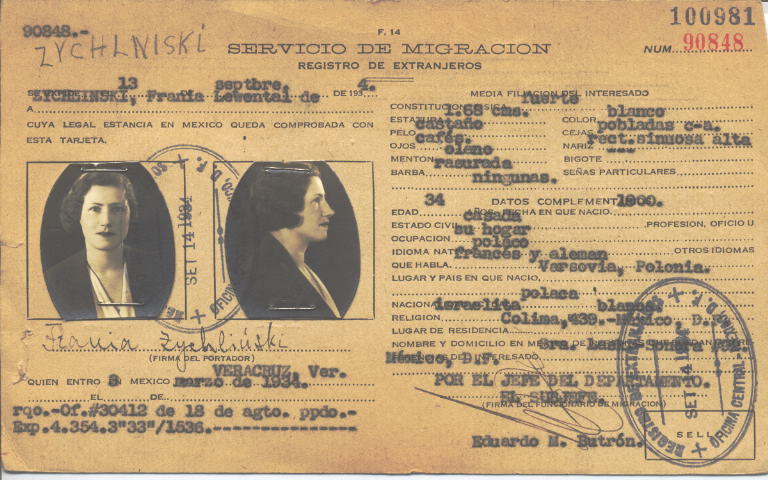 90848.-
ZYCHLNISKI
F. 14
SERVICIO DE MIGRACION
REGISTRO DE EXTRANJEROS
100981
NUM. 90848
SE EXPIDE 13 DE septbre. DE 193 4.
A ZYCHLINSKI, Frania Lewental de
CUYA LEGAL ESTANCIA EN MEXICO QUEDA COMPROBADA CON
ESTA TARJETA.
SET 14 1934
OFICINA
Frania Zychliński
(FIRMA DEL PORTADOR)
QUIEN ENTRO A MEXICO VERACRUZ, Ver.
EL 5 DE marzo de 1934.
rqo.-Of.#30412 de 18 de agto. ppdo.-
Exp.4.354.3"33"/1536.---------------
MEDIA FILIACION DEL INTERESADO
CONSTITUCION FISICA fuerte
ESTATURA 1.68 cms. COLOR blanco
PELO castaño CEJAS pobladas c-a.
OJOS cafés. NARIZ rect.sinuosa alta
MENTON BIGOTE ---
BARBA rasurada SEÑAS PARTICULARES
ningunas.
DATOS COMPLEMENT
EDAD 34 AÑOS. FECHA EN QUE NACIO. 1900.
ESTADO CIVIL casada PROFESION, OFICIO U
OCUPACION su hogar
IDIOMA NAT polaco OTROS IDIOMAS
QUE HABLA francés y aleman
LUGAR Y PAIS EN QUE NACIO. Varsovia, Polonia.
NACIONA polaca
RELIGION israelita blanca
LUGAR DE RESIDENCIA Colima, 439.-México. D.
NOMBRE Y DOMICILIO EN
México, D.F. INTERESADO
POR EL JEFE DEL DEPARTAMENTO.
EL SUBJEFE.
(FIRMA DEL FUNCIONARIO DE MIGRACION)
Eduardo M. Butrón.
SET 14 1934
OFICINA CENTRAL
SELLO